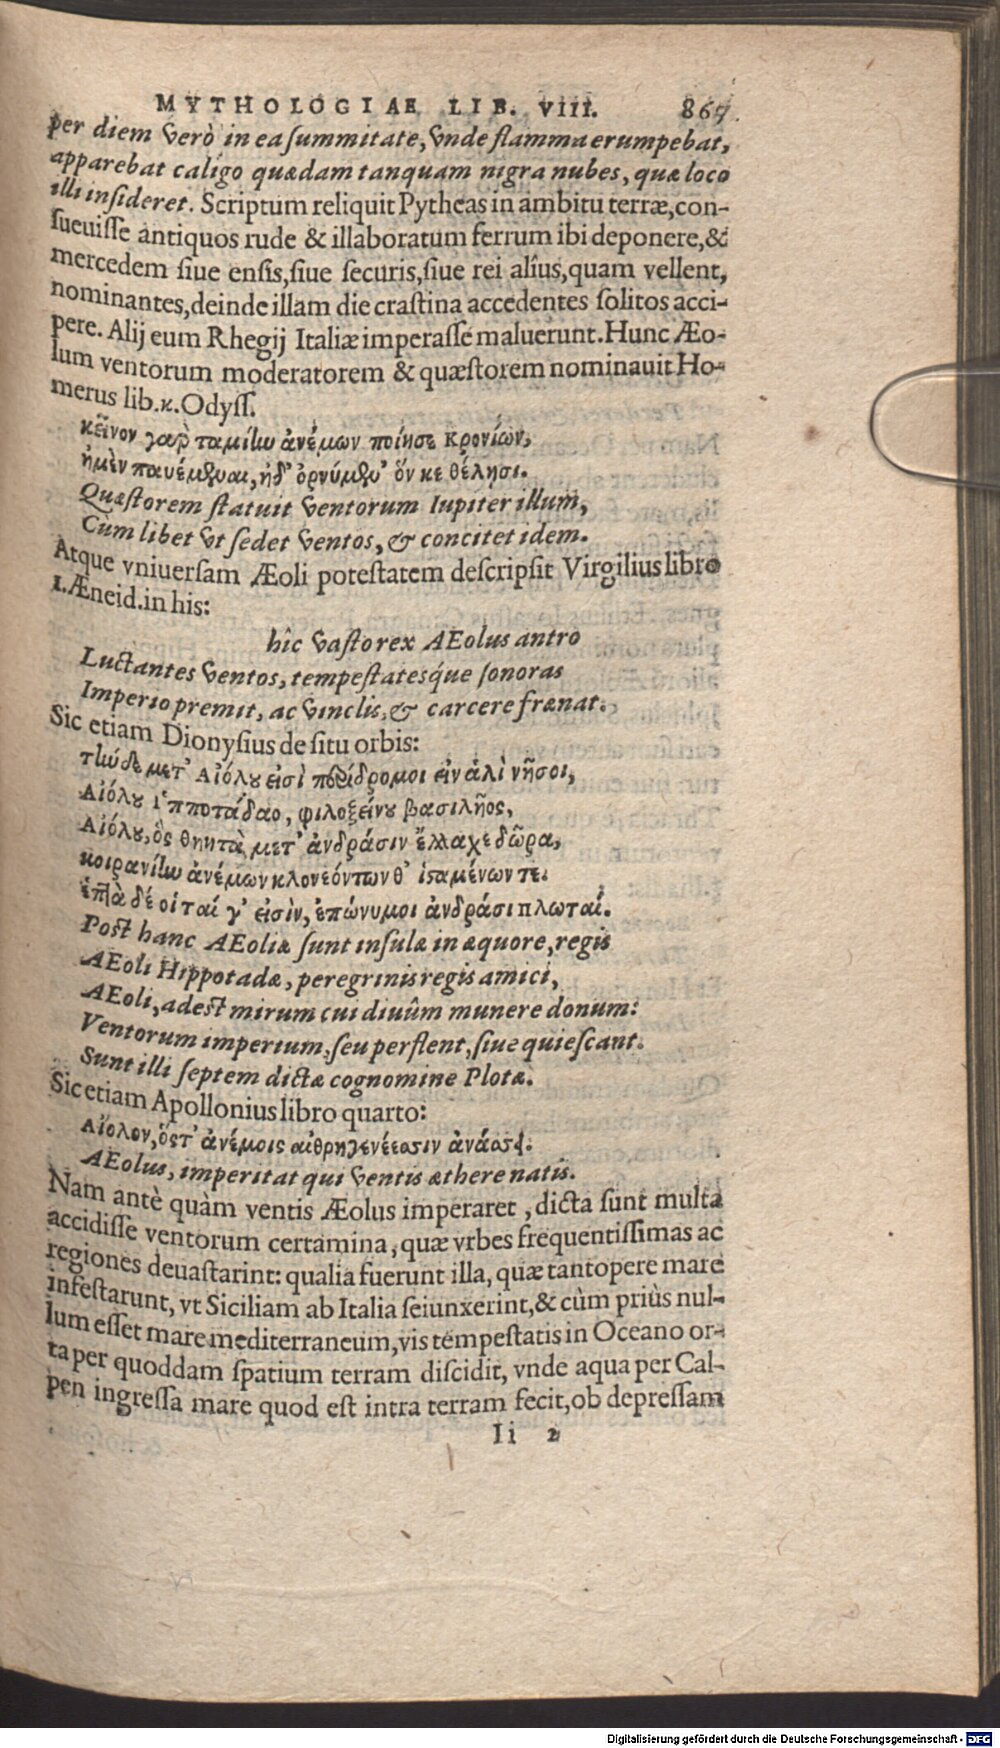 MYTHOLOGIAE LIB. VIII. 867
per diem verò in ea summitate, vnde flamma erumpebat,
apparebat caligo quædam tanquam nigra nubes, quæ loco
illi insideret. Scriptum reliquit Pytheas in ambitu terræ, con-
sueuisse antiquos rude & illaboratum ferrum ibi deponere, &
mercedem siue ensis, siue securis, siue rei alîus, quam vellent,
nominantes, deinde illam die crastina accedentes solitos acci-
pere. Alij eum Rhegij Italiæ imperasse maluerunt. Hunc Æo-
lum ventorum moderatorem & quæstorem nominauit Ho-
merus lib. κ. Odyss.
κεῖνον γαρ ταμίην ἀνέμων ποίησε κρονίων,
ἠμὲν παυέμεναι, ἠδ' ὀρνύμεν ὅν κε θέλησι.
Quæstorem statuit ventorum Iupiter illum,
Cùm libet vt sedet ventos, & concitet idem.
Atque vniuersam Æoli potestatem descripsit Virgilius libro
1. Æneid. in his:
hîc vasto rex AEolus antro
Luctantes ventos, tempestatesq́ue sonoras
Imperio premit, ac vinclis, & carcere frænat.
Sic etiam Dionysius de situ orbis:
τὴν δε μετ' Αἰόλου εἰσὶ περίδρομοι εἰν ἁλὶ νῆσοι,
Αἰόλου ἱπποτάδαο, φιλοξείνου βασιλῆος,
Αἰόλου, ὃς θηητὰ μετ' ἀνδράσιν ἔλλαχε δῶρα,
κοιρανίην ἀνέμων κλονεόντων θ' ἱσταμένων τε.
ἑπτὰ δέ οἱ ταί γ' εἰσὶν, ἐπώνυμοι ἀνδράσι πλωταί.
Post hanc AEoliæ sunt insulæ in æquore, regis
AEoli Hippotadæ, peregrinis regis amici,
AEoli, adest mirum cui diuûm munere donum:
Ventorum imperium, seu perflent, siue quiescant.
Sunt illi septem dictæ cognomine Plotæ.
Sic etiam Apollonius libro quarto:
Αἴολον, ὅστ' ἀνέμοις αἰθρηγενέεσσιν ἀνάσσει.
AEolus, imperitat qui ventis æthere natis.
Nam antè quàm ventis Æolus imperaret, dicta sunt multa
accidisse ventorum certamina, quæ vrbes frequentissimas ac
regiones deuastarint: qualia fuerunt illa, quæ tantopere mare
infestarunt, vt Siciliam ab Italia seiunxerint, & cùm priùs nul-
lum esset mare mediterraneum, vis tempestatis in Oceano or-
ta per quoddam spatium terram discidit, vnde aqua per Cal-
pen ingressa mare quod est intra terram fecit, ob depressam
Ii 2
Digitalisierung gefördert durch die Deutsche Forschungsgemeinschaft - DFG